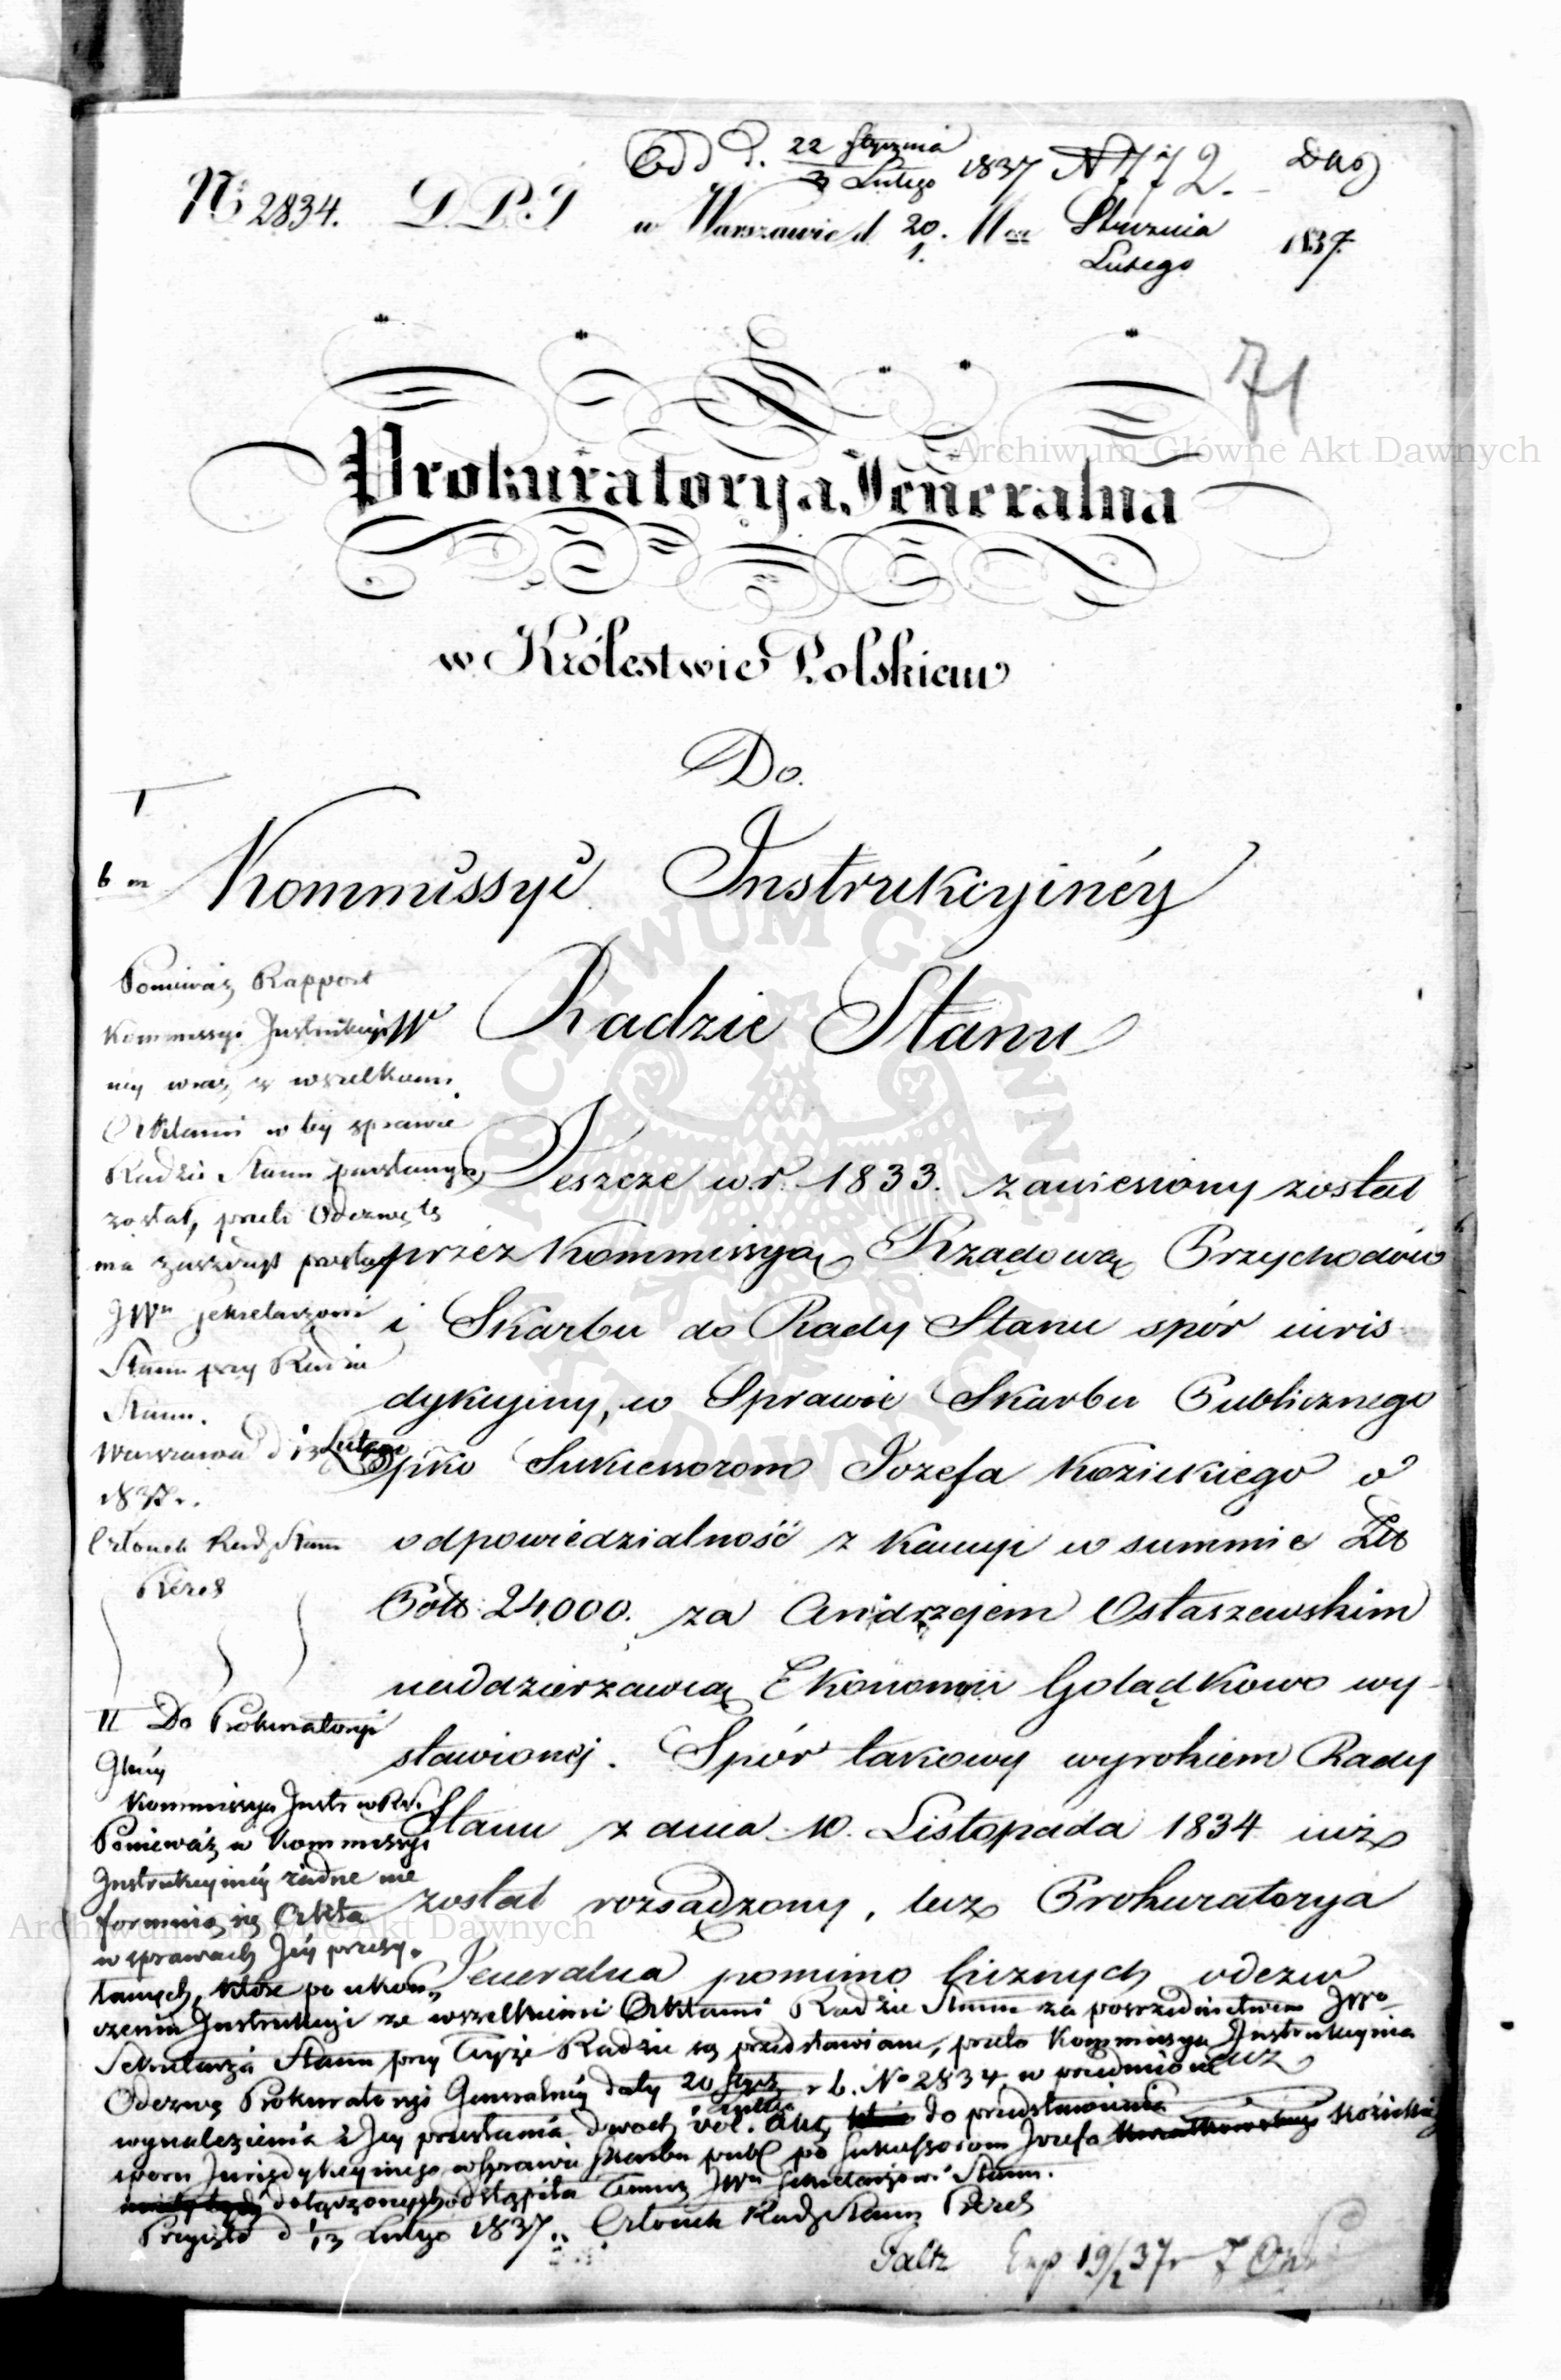 Odd d. 22 Stycznia 1837 N 772. Dks
3 Lutego
No 2834. D.P.J w Warszawie d. 20. Mca Stycznia 1837.
1. Lutego
71
Prokuratorya Jeneralna
w Królestwie Polskiem
Do.
Kommissyi Instrukcyinéy
w Radzie Stanu
Jeszcze w r. 1833. zaniesiony został
przez Kommissyą Rządową Przychodów
i Skarbu do Rady Stanu spór iuris
dykcyiny, w Sprawie Skarbu Publicznego
pko Sukcessorom Jozefa Kozickiego o
odpowiedzialność z kaucyi w summie Zł
Pols: 24000. za Andrzejem Ostaszewskim
naddzierzawcą Ekonomii Golądkowo wy-
stawionej. Spór takowy wyrokiem Rady
Stanu z dnia 10. Listopada 1834 iuż
został rozsądzony, lecz Prokuratorya
Jeneralna pomimo licznych odezw
I
6 m
Ponieważ Rapport
Kommissyi Instrukcyi
néy wraz z wszelkiemi
Aktami w tey sprawie
Radzie Stanu przesłany
został, przeto Odezwę tę
ma zaszczyt przesłać
JWu Sekretarzowi
Stanu przy Radzie
Stanu.
Warszawa d 1/13 Lutego
1837 r.
Członek Rady Stanu
II Do Prokuratoryi
Glnéy
Kommissya Instr w R.S.
Ponieważ w Kommissyi
Instrukcyinéy żadne nie
formuią się Akta
w sprawach Jéy przesy-
łanych, które po ukoń-
czeniu Instrukcyi ze wszelkiemi Aktami Radzie Stanu za posrzednictwem JWo
Sekretarza Stanu przy Teyże Radzie są przedstawiane, przeto Kommissya Instrukcyina
Odezwę Prokuratoryi Generalnéy daty 20 Stycz r b. No 2834 w przedmiocie
1 Lutego
wynalezienia i Jey przesłania dwoch vol. Akt do przedstawienia
sporu Jurisdykcyinego w sprawie Skarbu publ po Sukcessorom Jozefa Kozickiego
dołączonych odstąpiła Temuż JWu Sekretarzowi Stanu.
d 1/13 Lutego 1837 r. Członek Rady Stanu
Exp 19/2 37 r